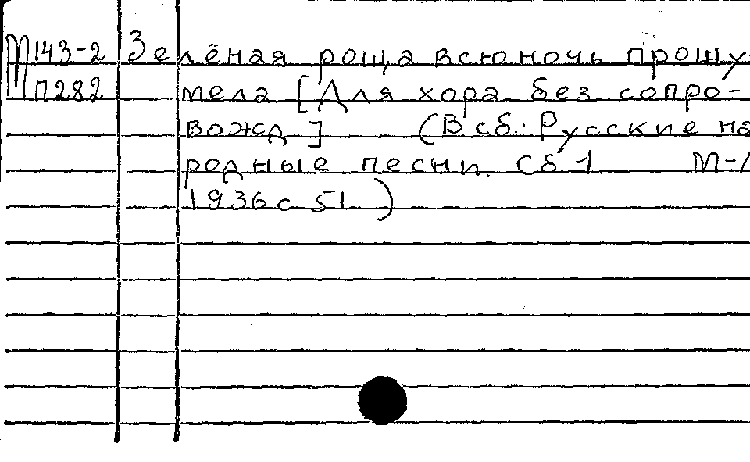 М143-2 Зелёная роща всю ночь прошу
П282 мела [Для хора без сопро-
вожд.] (В сб.: Русские на
родные песни. Сб 1 М-Л
1936 с 51.)